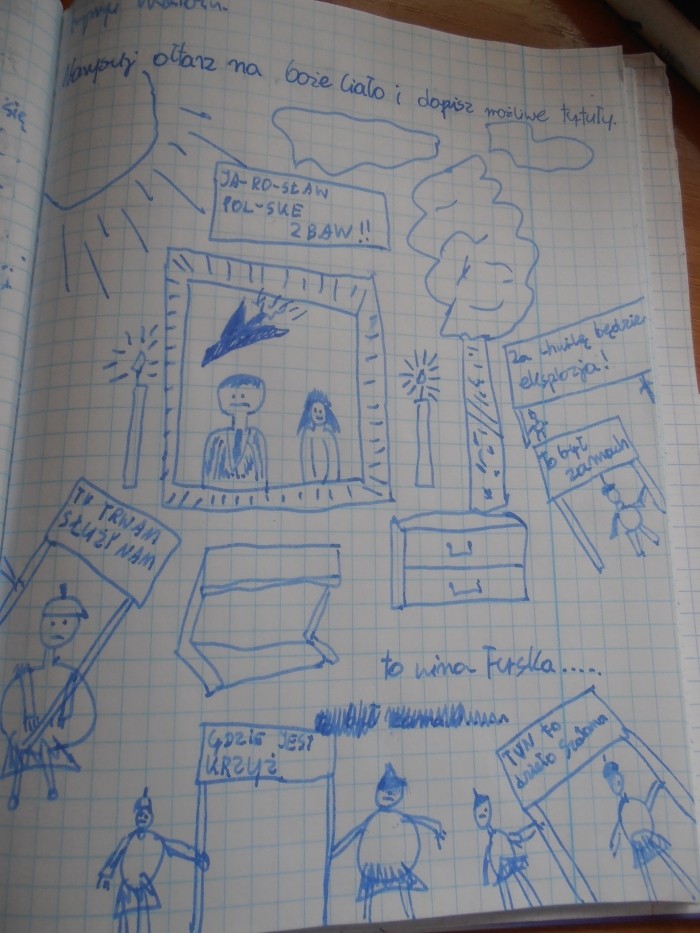 Narysuj ołtarz na boże ciało i dopisz możliwe tytuły.
się
JA-RO-SŁAW
POL-SKE
ZBAW!!
Za chwilkę będzie
eksplozja!
to był
zamach
TV TRWAM
SŁUŻY NAM
to wina Tuska.....
GDZIE JEST
KRZYŻ
TVN to
dzieło szatana